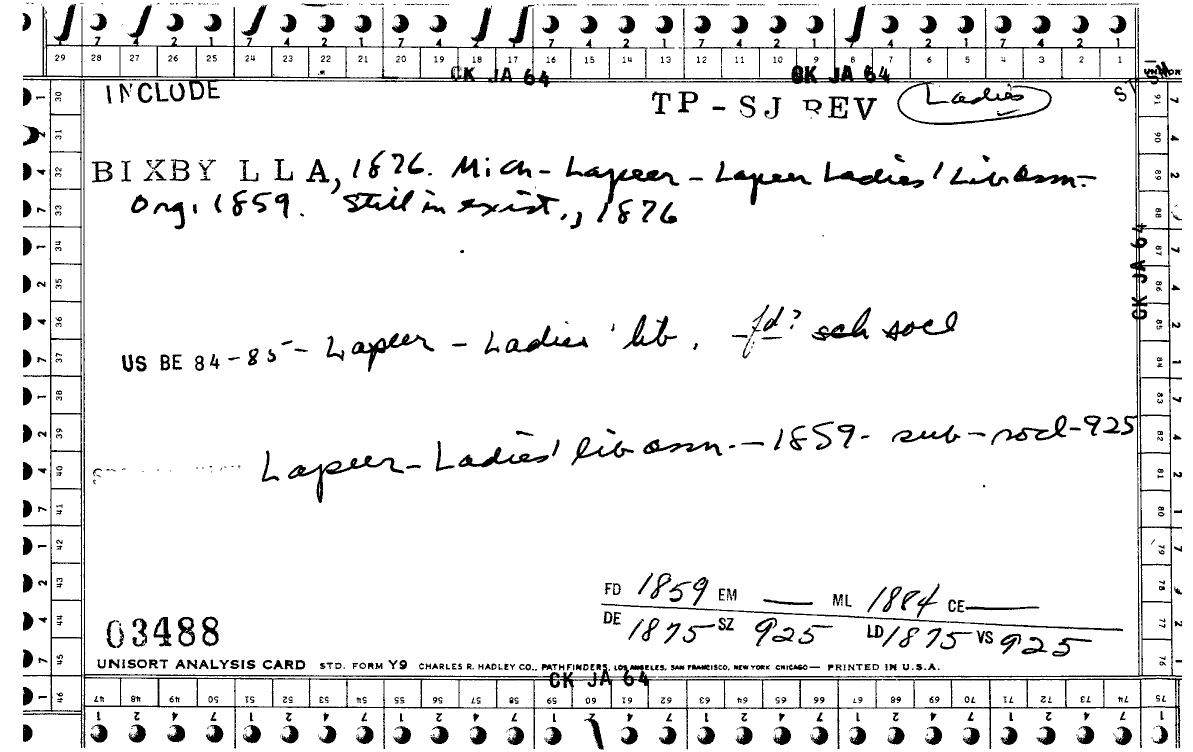 7 4 2 1 7 4 2 1 7 4 2 1 7 4 2 1 7 4 2 1 7 4 2 1 7 4 2 1
29 28 27 26 25 24 23 22 21 20 19 18 17 16 15 14 13 12 11 10 9 8 7 6 5 4 3 2 1
CK JA 64 CK JA 64
INCLUDE
TP - SJ REV Ladies ST
BIXBY L L A, 1876. Mich - Lapeer - Lapeer Ladies' Lib Assn. -
Org. 1859. Still in exist., 1876
CK JA 64
US BE 84-85 - Lapeer - Ladies' lib. - fd? sch socl
Lapeer - Ladies' lib assn. - 1859 - sub - socl - 925
FD 1859 EM — ML 1884 CE —
DE 1875 SZ 925 LD 1875 VS 925
03488
UNISORT ANALYSIS CARD STD. FORM Y9 CHARLES R. HADLEY CO., PATHFINDERS, LOS ANGELES, SAN FRANCISCO, NEW YORK CHICAGO — PRINTED IN U.S.A.
CK JA 64
47 48 49 50 51 52 53 54 55 56 57 58 59 60 61 62 63 64 65 66 67 68 69 70 71 72 73 74 75